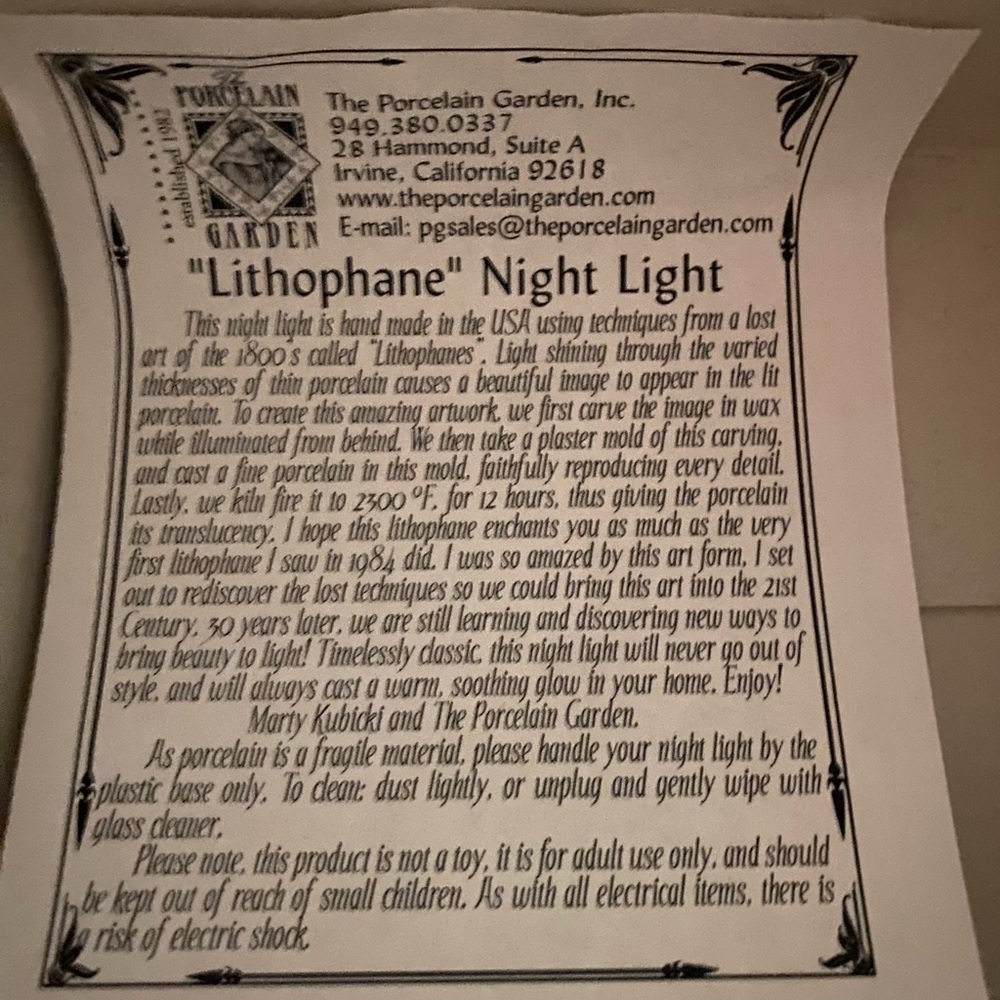 The
PORCELAIN
GARDEN
established 1982
The Porcelain Garden, Inc.
949.380.0337
28 Hammond, Suite A
Irvine, California 92618
www.theporcelaingarden.com
E-mail: pgsales@theporcelaingarden.com
"Lithophane" Night Light
This night light is hand made in the USA using techniques from a lost
art of the 1800's called "Lithophanes". Light shining through the varied
thicknesses of thin porcelain causes a beautiful image to appear in the lit
porcelain. To create this amazing artwork, we first carve the image in wax
while illuminated from behind. We then take a plaster mold of this carving,
and cast a fine porcelain in this mold, faithfully reproducing every detail.
Lastly, we kiln fire it to 2300 °F, for 12 hours, thus giving the porcelain
its translucency. I hope this lithophane enchants you as much as the very
first lithophane I saw in 1984 did. I was so amazed by this art form, I set
out to rediscover the lost techniques so we could bring this art into the 21st
Century. 30 years later, we are still learning and discovering new ways to
bring beauty to light! Timelessly classic, this night light will never go out of
style, and will always cast a warm, soothing glow in your home. Enjoy!
Marty Kubicki and The Porcelain Garden.
As porcelain is a fragile material, please handle your night light by the
plastic base only. To clean: dust lightly, or unplug and gently wipe with
glass cleaner.
Please note, this product is not a toy, it is for adult use only, and should
be kept out of reach of small children. As with all electrical items, there is
a risk of electric shock.